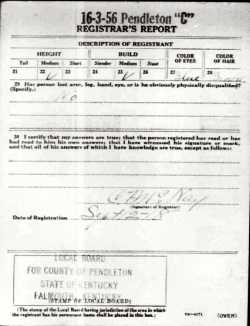 16-3-56 Pendleton "C"
REGISTRAR'S REPORT
DESCRIPTION OF REGISTRANT
HEIGHT BUILD COLOR OF EYES COLOR OF HAIR
Tall Medium Short Slender Medium Stout
21 22 23 24 25 26 27 28
29 Has person lost arm, leg, hand, eye, or is he obviously physically disqualified?
(Specify.)
no
30 I certify that my answers are true; that the person registered has read or has
had read to him his own answers; that I have witnessed his signature or mark,
and that all of his answers of which I have knowledge are true, except as follows:
(Signature of Registrar)
Date of Registration Sept 12-18
LOCAL BOARD
FOR COUNTY OF PENDLETON
STATE OF KENTUCKY
FALMOUTH, KENTUCKY
(STAMP OF LOCAL BOARD)
(The stamp of the Local Board having jurisdiction of the area in which
the registrant has his permanent home shall be placed in this box.)
(OVER)